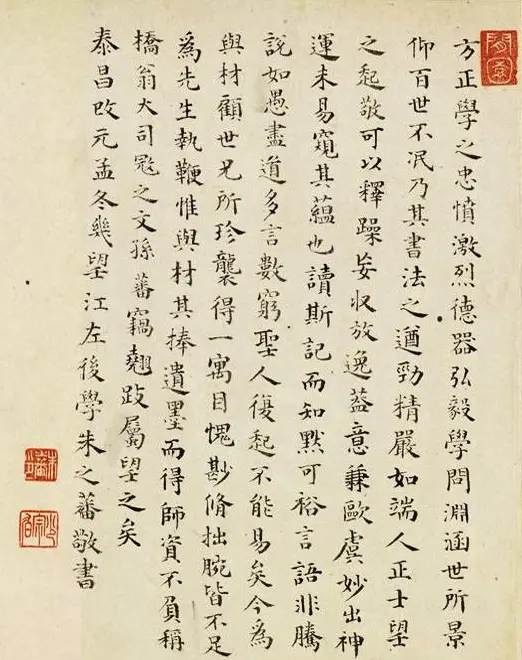 方正學之忠憤激烈德器弘毅學問淵涵世所景
仰百世不泯乃其書法之遒勁精嚴如端人正士望
之起敬可以釋躁妄収放逸葢意兼歐虞妙出神
運未易窺其蘊也讀斯記而知默可裕言語非騰
說如愚盡道多言數窮聖人復起不能易矣今為
與材顧世兄所珍襲得一寓目愧尠脩拙腕皆不足
為先生執鞭惟與材其捧遺墨而得師資不負稱
橋翁大司寇之文孫蕃竊翹跂屬望之矣
泰昌改元孟冬幾望江左後學朱之蕃敬書